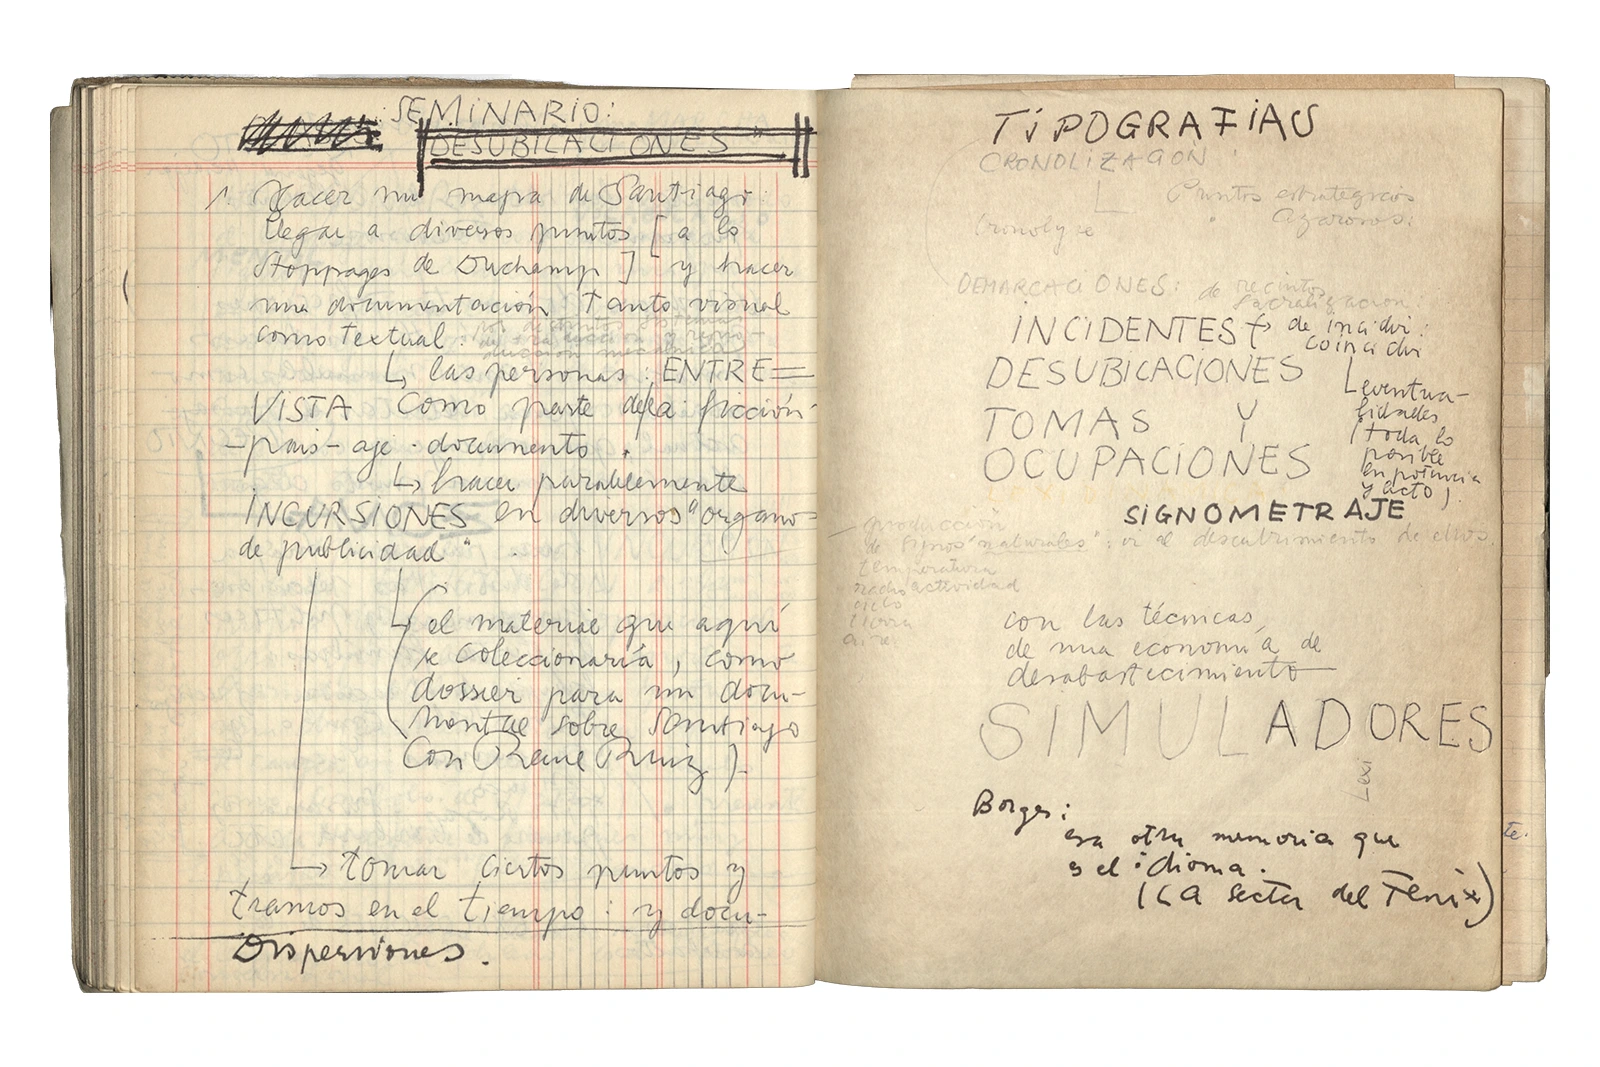 SEMINARIO:
DESUBICACIONES"
1. Hacer un mapa de Santiago:
llegar a diversos puntos [a lo
Stoppages de Duchamp] y hacer
una documentación tanto visual
como textual.
↳ las personas: ENTRE=
VISTA como parte de la ficción-
-pais-aje-documento.
↳ hacer paralelamente
INCURSIONES en diversos "organo=
de publicidad".
(el material que aquí
se coleccionaría, como
dossier para un docu-
mental sobre Santiago
con Ruiz).
→ tomar ciertos puntos y
tramos en el tiempo: y docu-
Dispersiones.
TiPOGRAFiAS
CRONOLIZAGON:
Puntos estrategicos
azarosos:
DEMARCACIONES: de recintos
sacralizacion:
INCIDENTES → de incidir:
coincidir
DESUBICACIONES
↳ eventua-
lidades
(toda lo
posible
en potencia
y acto).
TOMAS Y
OCUPACIONES
SIGNOMETRAJE
producción
de signos "naturales"; o el descubrimiento de ellos.
temperatura
radioactividad
cielo
tierra
aire
con las técnicas
de una economía de
desabastecimiento
SIMULADORES
Lexi
Borges:
esa otra memoria que
es el idioma.
(LA secta del Fenix)
te.